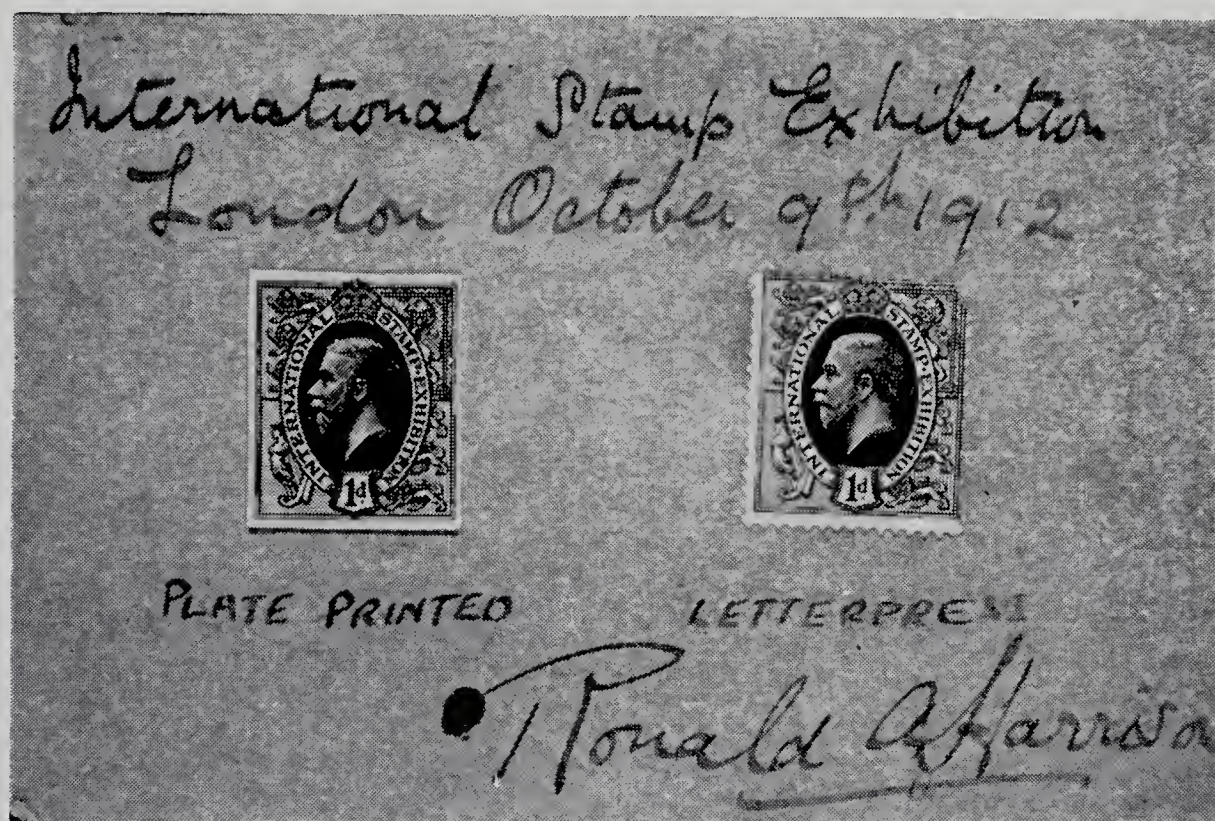 International Stamp Exhibition
London October 9th 1912
INTERNATIONAL STAMP·EXHIBITION
1d
INTERNATIONAL STAMP·EXHIBITION
1d
PLATE PRINTED LETTERPRESS
Ronald A Harrison